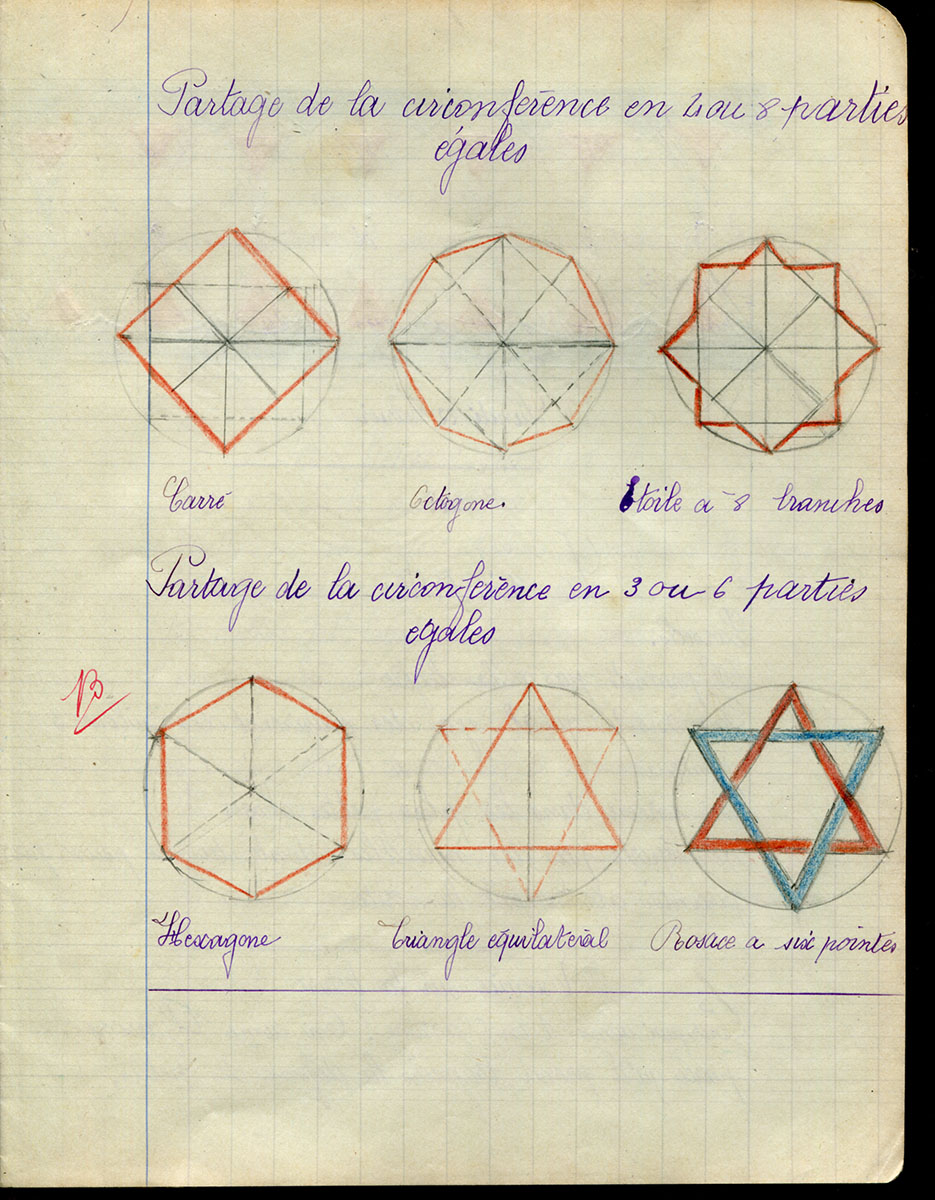 Partage de la circonférence en 4 ou 8 parties
égales
Carré Octogone. Etoile à 8 branches
Partage de la circonférence en 3 ou 6 parties
égales
B
Hexagone triangle équilatéral Rosace a six pointes